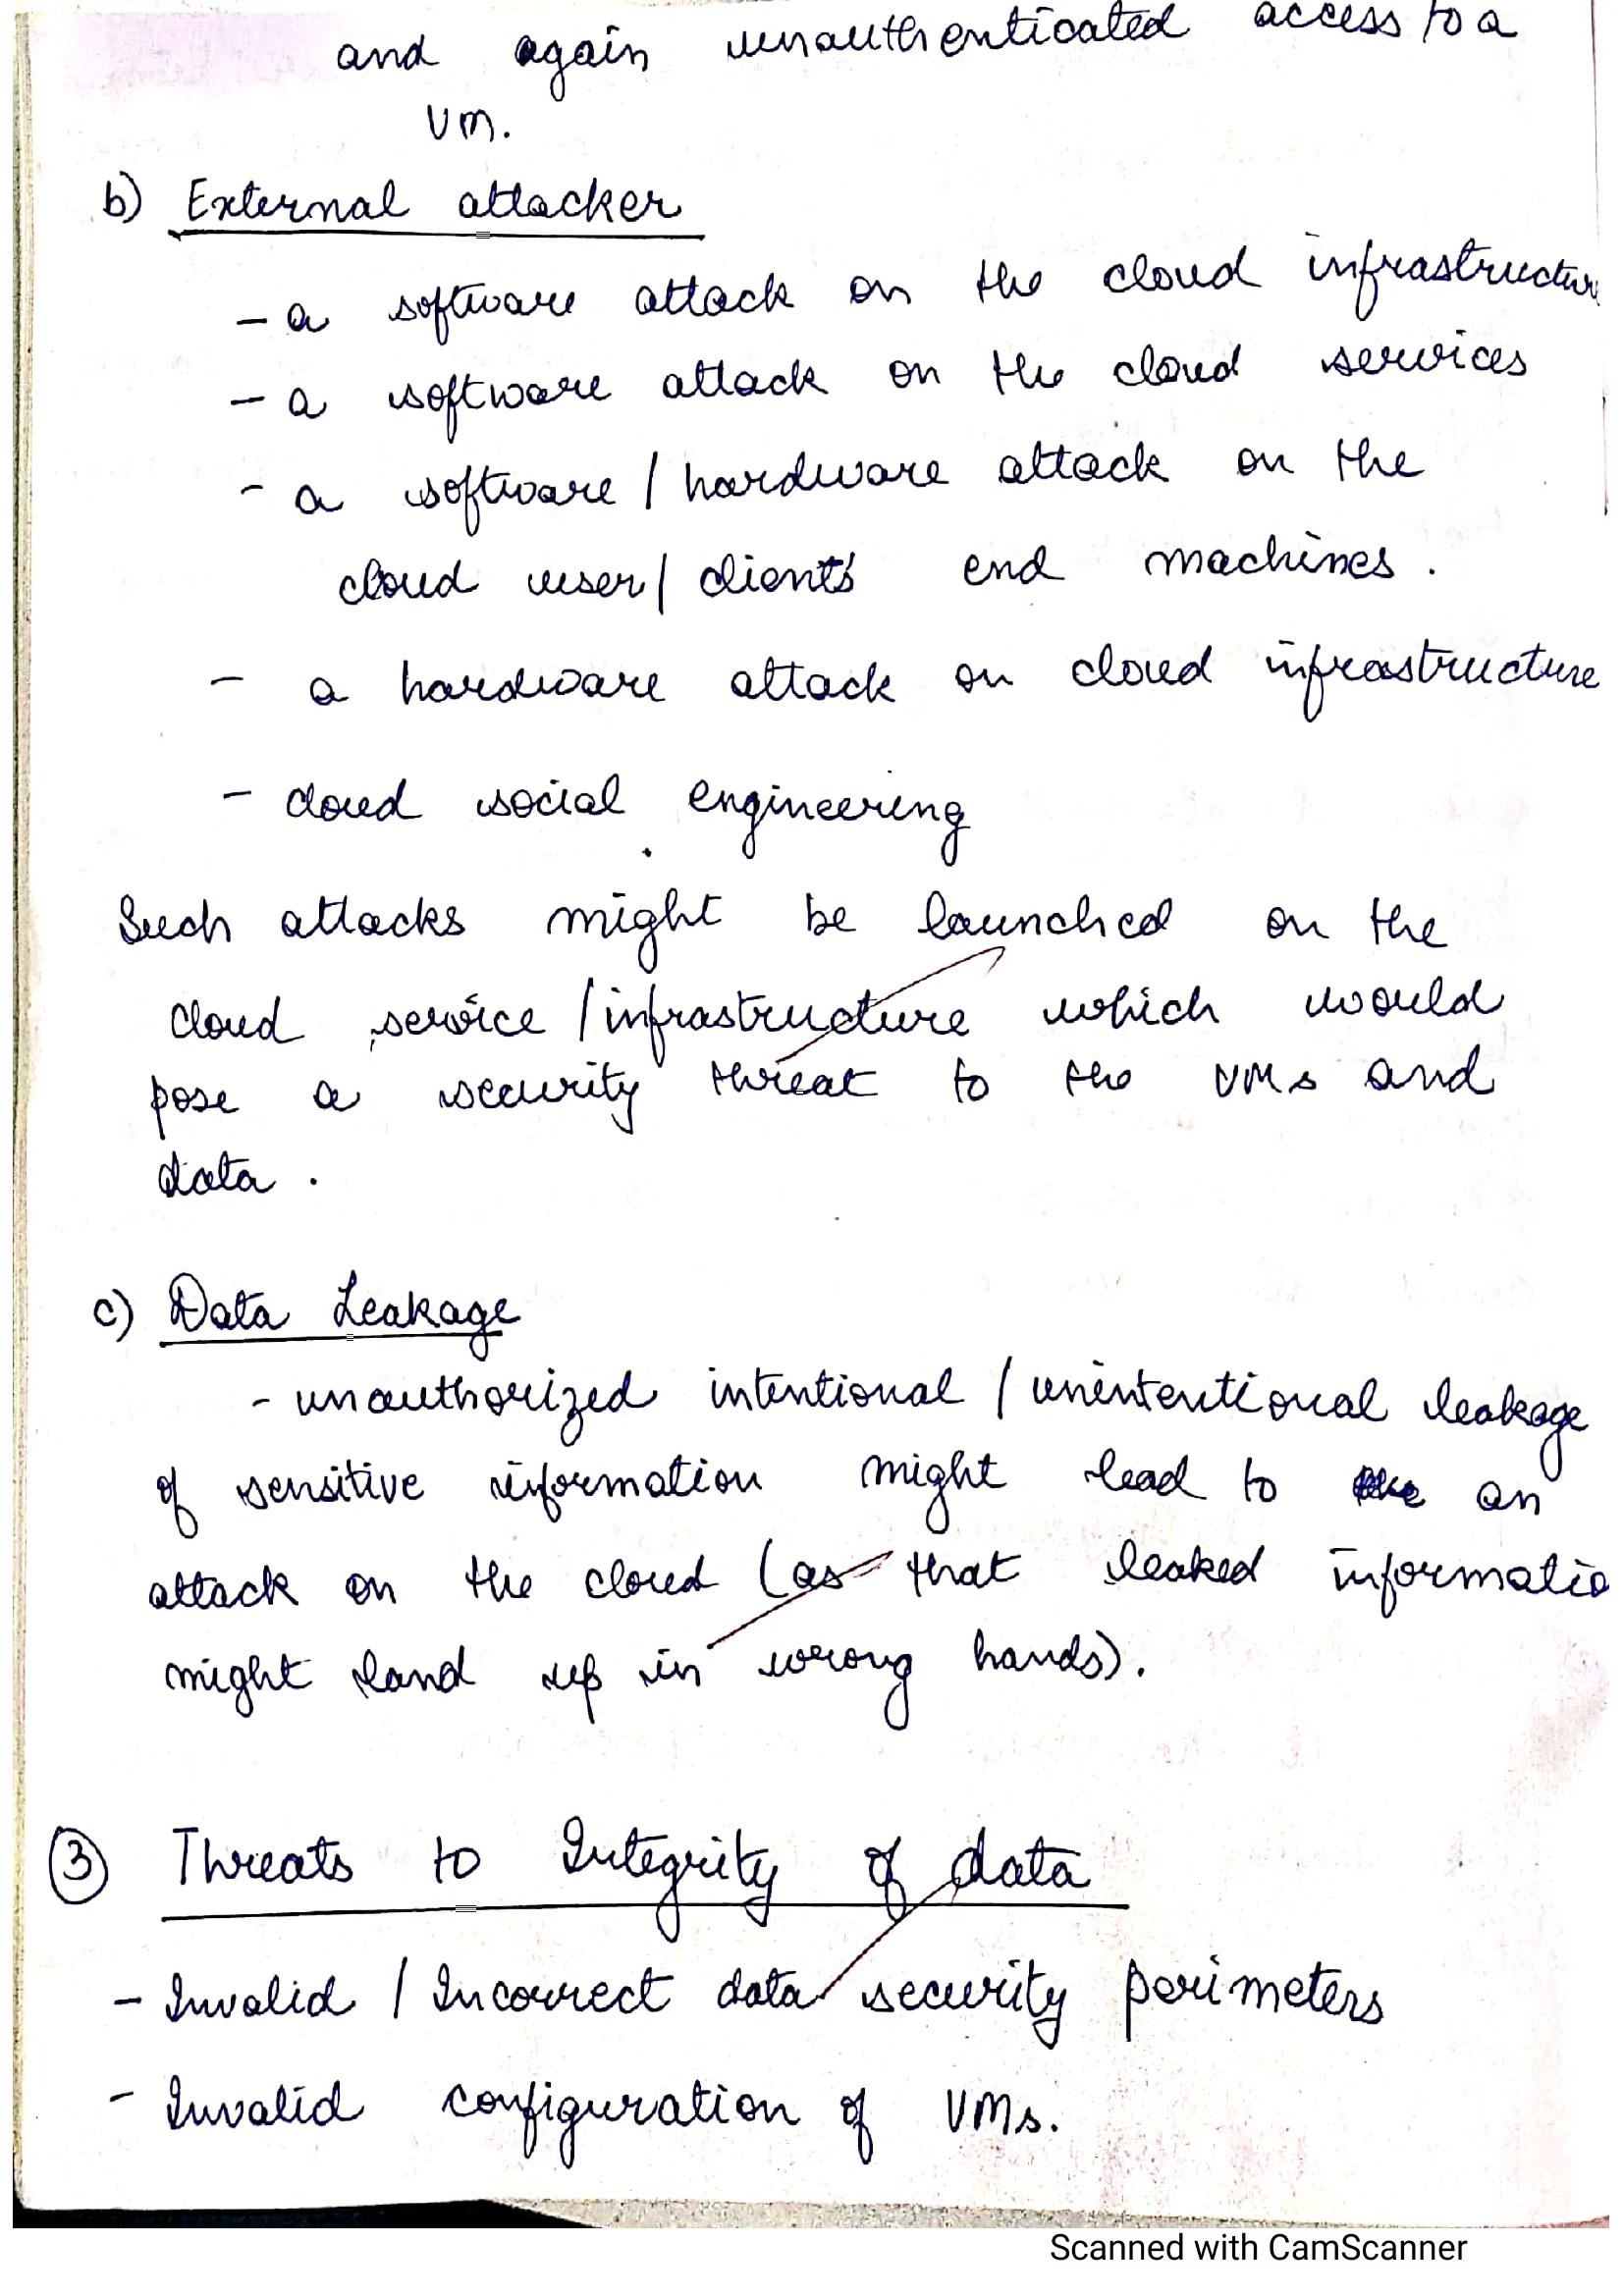 and again unauthenticated access to a
VM.
b) External attacker
- a software attack on the cloud infrastructur
- a software attack on the cloud services
- a software / hardware attack on the
cloud user / client's end machines.
- a hardware attack on cloud infrastructure
- cloud social engineering
Such attacks might be launched on the
cloud service / infrastructure which would
pose a security threat to the VMs and
data.
c) Data Leakage
- unauthorized intentional / unintentional leakage
of sensitive information might lead to an
attack on the cloud (as that leaked informatio
might land up in wrong hands).
③ Threats to Integrity of data
- Invalid / Incorrect data security perimeters
- Invalid configuration of VMs.
Scanned with CamScanner